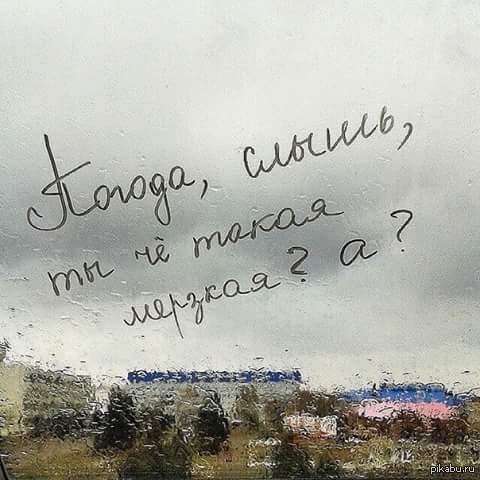 Погода, слышь,
ты чё такая
мерзкая? а?
pikabu.ru